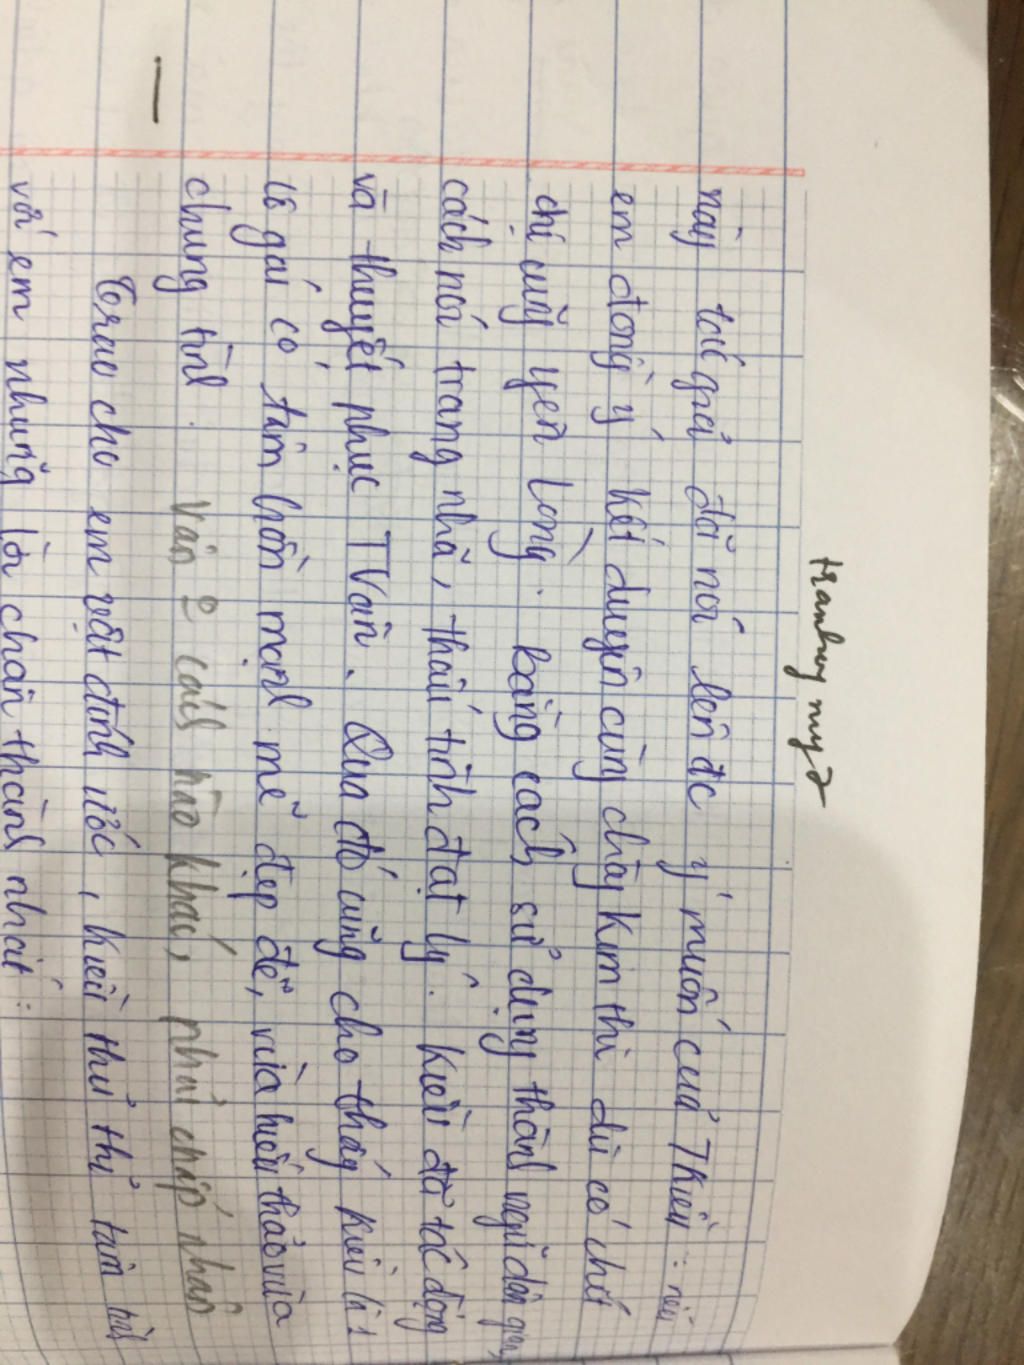 này tác giả đã nói lên đc ý muốn của TKiều : nếu
em đồng ý kết duyên cùng chàng Kim thì dù có chết
chị cũng yên lòng. Bằng cách sử dụng thành ngữ dân gian,
cách nói trang nhã, thấu tình đạt lý. Kiều đã tác động
và thuyết phục TVân. Qua đó cũng cho thấy Kiều là 1
cô gái có tâm hồn mạnh mẽ đẹp đẽ, vừa hiếu thảo vừa
chung tình. cách nào khác, phải chấp nhận
Trao cho em vật đính ước, Kiều thủ thỉ tâm tình
với em những lời chân thành nhất :